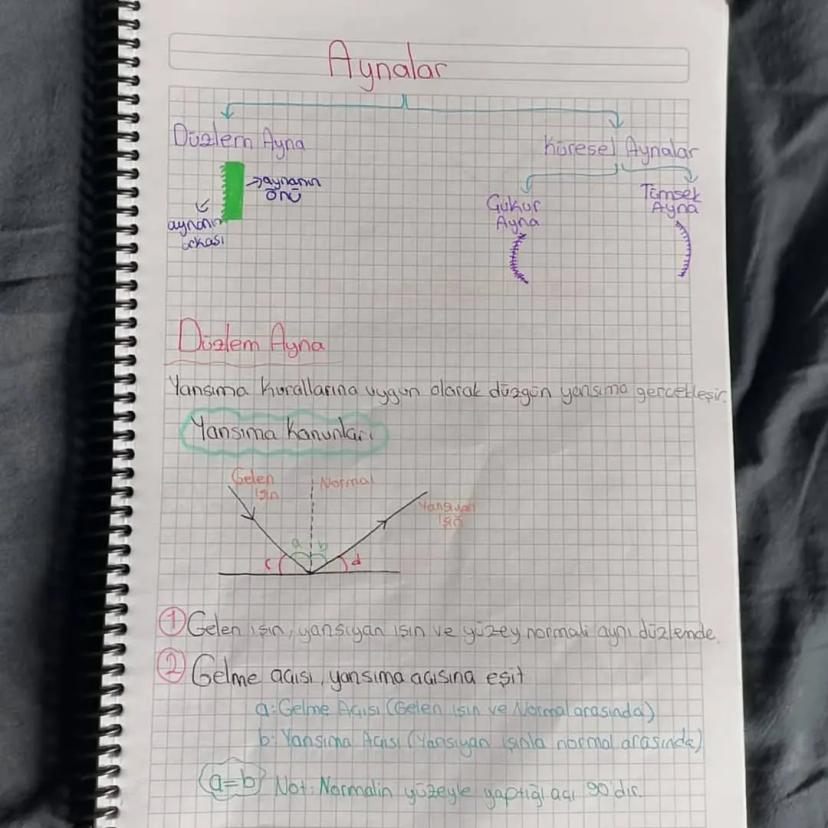 Aynalar
Düzlem Ayna
Küresel Aynalar
→aynanın
önü
aynanın
arkası
Çukur
Ayna
Tümsek
Ayna
Düzlem Ayna
Yansıma kurallarına uygun olarak düzgün yansıma gerçekleşir.
Yansıma Kanunları
Gelen
ışın
Normal
Yansıyan
ışın
a b
c d
① Gelen ışın, yansıyan ışın ve yüzey normali aynı düzlemde.
② Gelme açısı, yansıma açısına eşit
a: Gelme Açısı (Gelen ışın ve Normal arasında)
b: Yansıma Açısı (Yansıyan ışınla normal arasında)
a=b Not: Normalin yüzeyle yaptığı açı 90°dir.